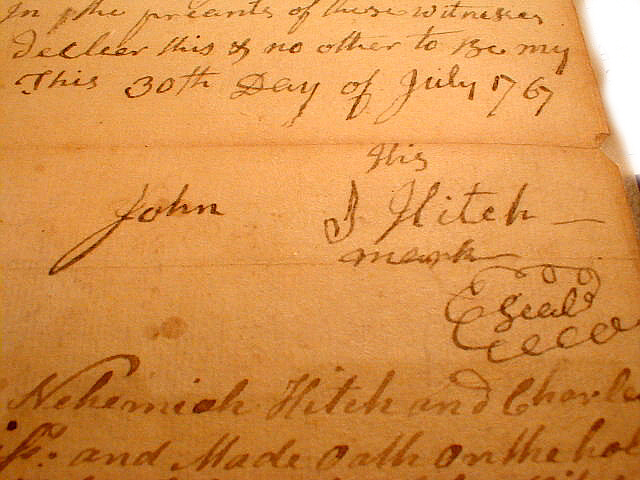 In the preants of these witnesses
decleer this & no other to Be my
This 30th Day of July 1767
His
John J Hitch
mark
Seal
Nehemiah Hitch and Charle
iss. and Made Oath on the hol